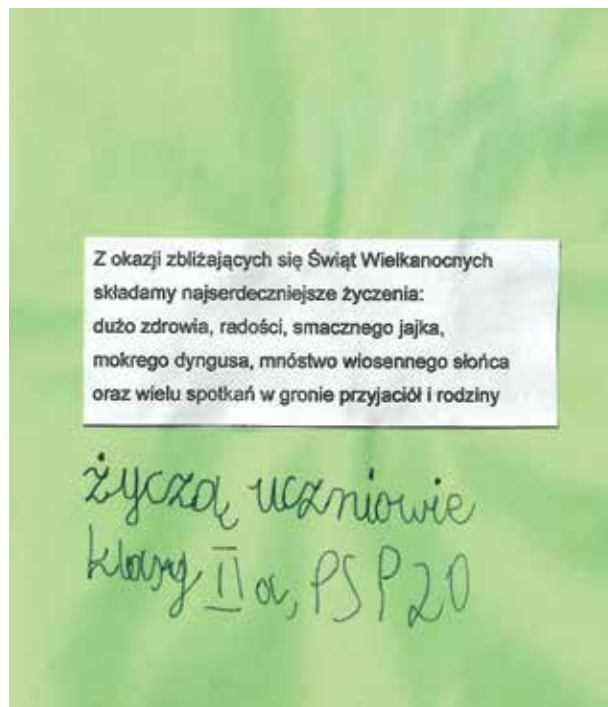 Z okazji zbliżających się Świąt Wielkanocnych
składamy najserdeczniejsze życzenia:
dużo zdrowia, radości, smacznego jajka,
mokrego dyngusa, mnóstwo wiosennego słońca
oraz wielu spotkań w gronie przyjaciół i rodziny
życzą uczniowie
klasy II a, PSP 20